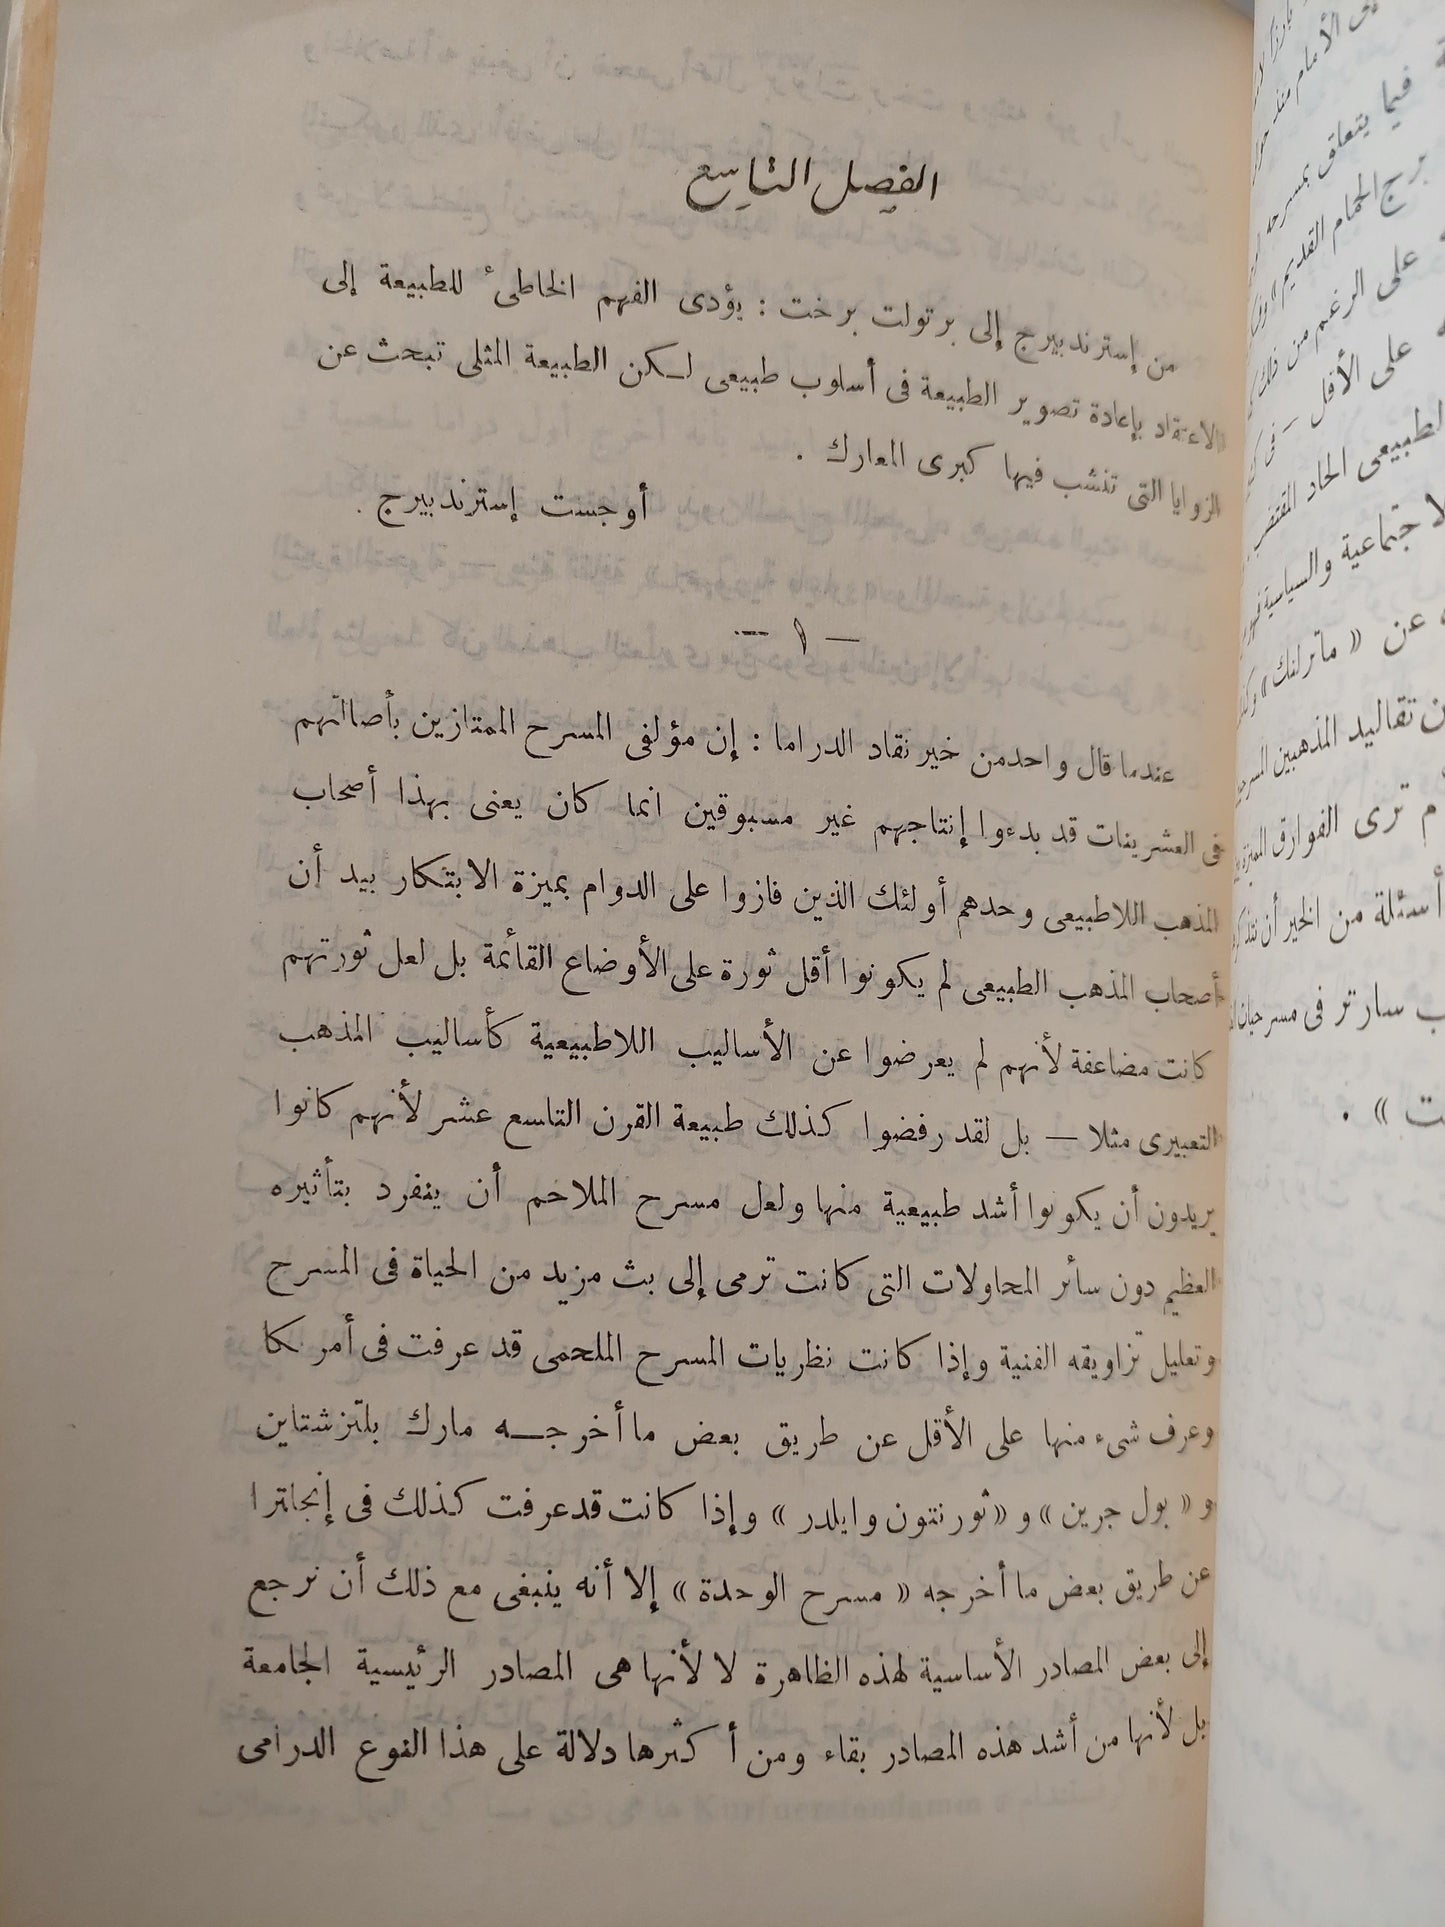 الفصل التاسع
من إسترندبيرج إلى برتولت برخت : يؤدى الفهم الخاطئ للطبيعة إلى
الاعتقاد بإعادة تصوير الطبيعة فى أسلوب طبيعى لـكن الطبيعة المثلى تبحث عن
الزوايا التى تنشب فيها كبرى المعارك .
أوجست إسترندبيرج .
— ١ —
عندما قال واحدمن خير نقاد الدراما : إن مؤلفى المسرح الممتازين بأصالتهم
فى العشرينات قد بدءوا إنتاجهم غير مسبوقين انما كان يعنى بهذا أصحاب
المذهب اللاطبيعى وحدهم أولئك الذين فازوا على الدوام بميزة الابتكار بيد أن
أصحاب المذهب الطبيعى لم يكونوا أقل ثورة على الأوضاع القائمة بل لعل ثورتهم
كانت مضاعفة لأنهم لم يعرضوا عن الأساليب اللاطبيعية كأساليب المذهب
التعبيرى مثلا — بل لقد رفضوا كذلك طبيعة القرن التاسع عشر لأنهم كانوا
يريدون أن يكونوا أشد طبيعية منها ولعل مسرح الملاحم أن ينفرد بتأثيره
العظيم دون سائر المحاولات التى كانت ترمى إلى بث مزيد من الحياة فى المسرح
وتعليل تزاويقه الفنية وإذا كانت نظريات المسرح الملحمى قد عرفت فى أمريكا
وعرف شىء منها على الأقل عن طريق بعض ما أخرجـــه مارك بلتزشتاين
و « بول جرين » و «ثورنتون وايلدر » وإذا كانت قدعرفت كذلك فى إنجلترا
عن طريق بعض ما أخرجه « مسرح الوحدة » إلا أنه ينبغى مع ذلك أن نرجع
إلى بعض المصادر الأساسية لهذه الظاهرة لا لأنها هى المصادر الرئيسية الجامعة
بل لأنها من أشد هذه المصادر بقاء ومن أكثرها دلالة على هذا النوع الدرامى
إلى الأمام منذ
فيما يتعلق بمسرحه
برج الحمام القديم»
على الرغم من ذلك
على الأقل — فى
الطبيعى الحاد المقتضب
الاجتماعية والسياسية
عن « ماترلنك»
تقاليد المذهبين
ترى الفوارق المميزة
أسئلة من الخير أن نتذكر
سارتر فى
» .